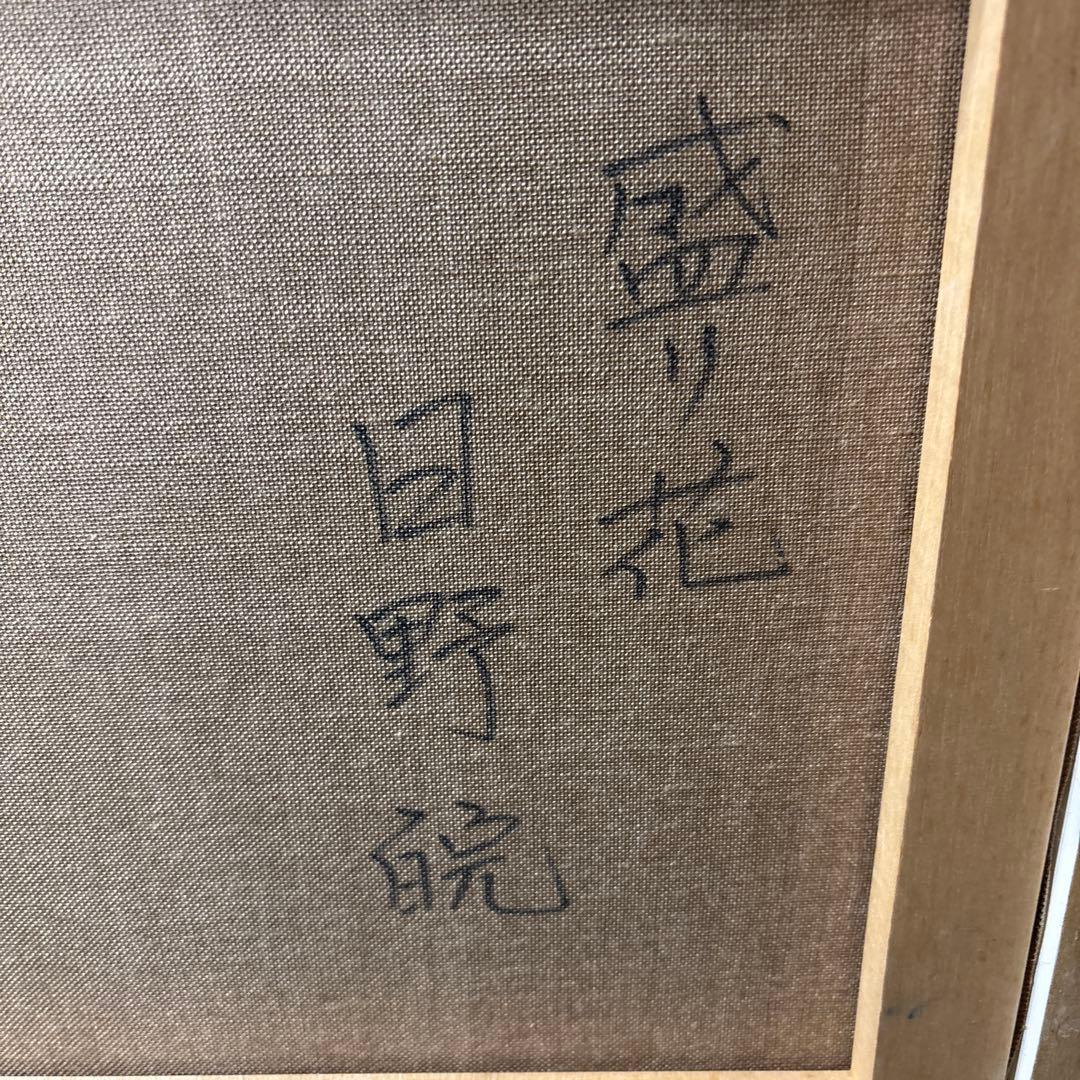 盛り花
日野皖